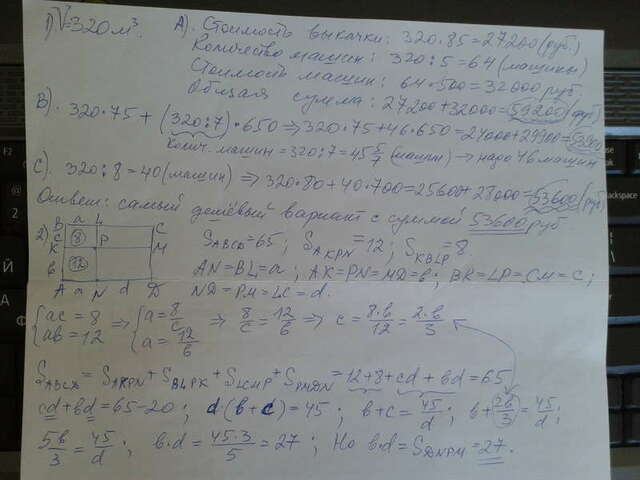 1) V=320 м³. А). Стоимость выкачки: 320·85=27200 (руб.)
Количество машин: 320:5=64 (машины)
Стоимость машин: 64·500=32000 руб.
Общая сумма: 27200+32000=59200 (руб)
В). 320·75+(320:7)·650⇒320·75+46·650=24000+29900=53900
Колич. машин=320:7=45 5/7 (машины)→надо 46 машин
С). 320:8=40 (машин)⇒320·80+40·700=25600+28000=53600 (руб)
Ответ: самый дешёвый вариант с суммой 53600 руб.
2) B a L C
c 8 P
K M
b 12
A a N d D
S_ABCD=65; S_AKPN=12; S_KBLP=8.
AN=BL=a; AK=PN=MD=b; BK=LP=CM=c;
ND=PM=LC=d.
{ac=8 ab=12 ⇒ {a=8/c a=12/b ⇒ 8/c=12/b ⇒ c=8·b/12=2·b/3
S_ABCD=S_AKPN+S_BLPK+S_LCMP+S_PMDN=12+8+cd+bd=65
cd+bd=65-20; d(b+c)=45; b+c=45/d; b+2b/3=45/d;
5b/3=45/d; b·d=45·3/5=27; Но b·d=S_DNPM=27.